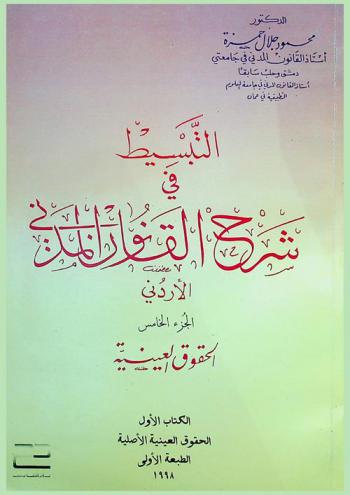 الدكتور
محمود جلال حمزة
أستاذ القانون المدني في جامعتي
دمشق وحلب سابقا
أستاذ القانون المدني في جامعة العلوم
التطبيقية في عمان
التبسيط
في
شرح القانون المدني
الأردني
الجزء الخامس
الحقوق العينية
الكتاب الأول
الحقوق العينية الأصلية
الطبعة الأولى
١٩٩٨